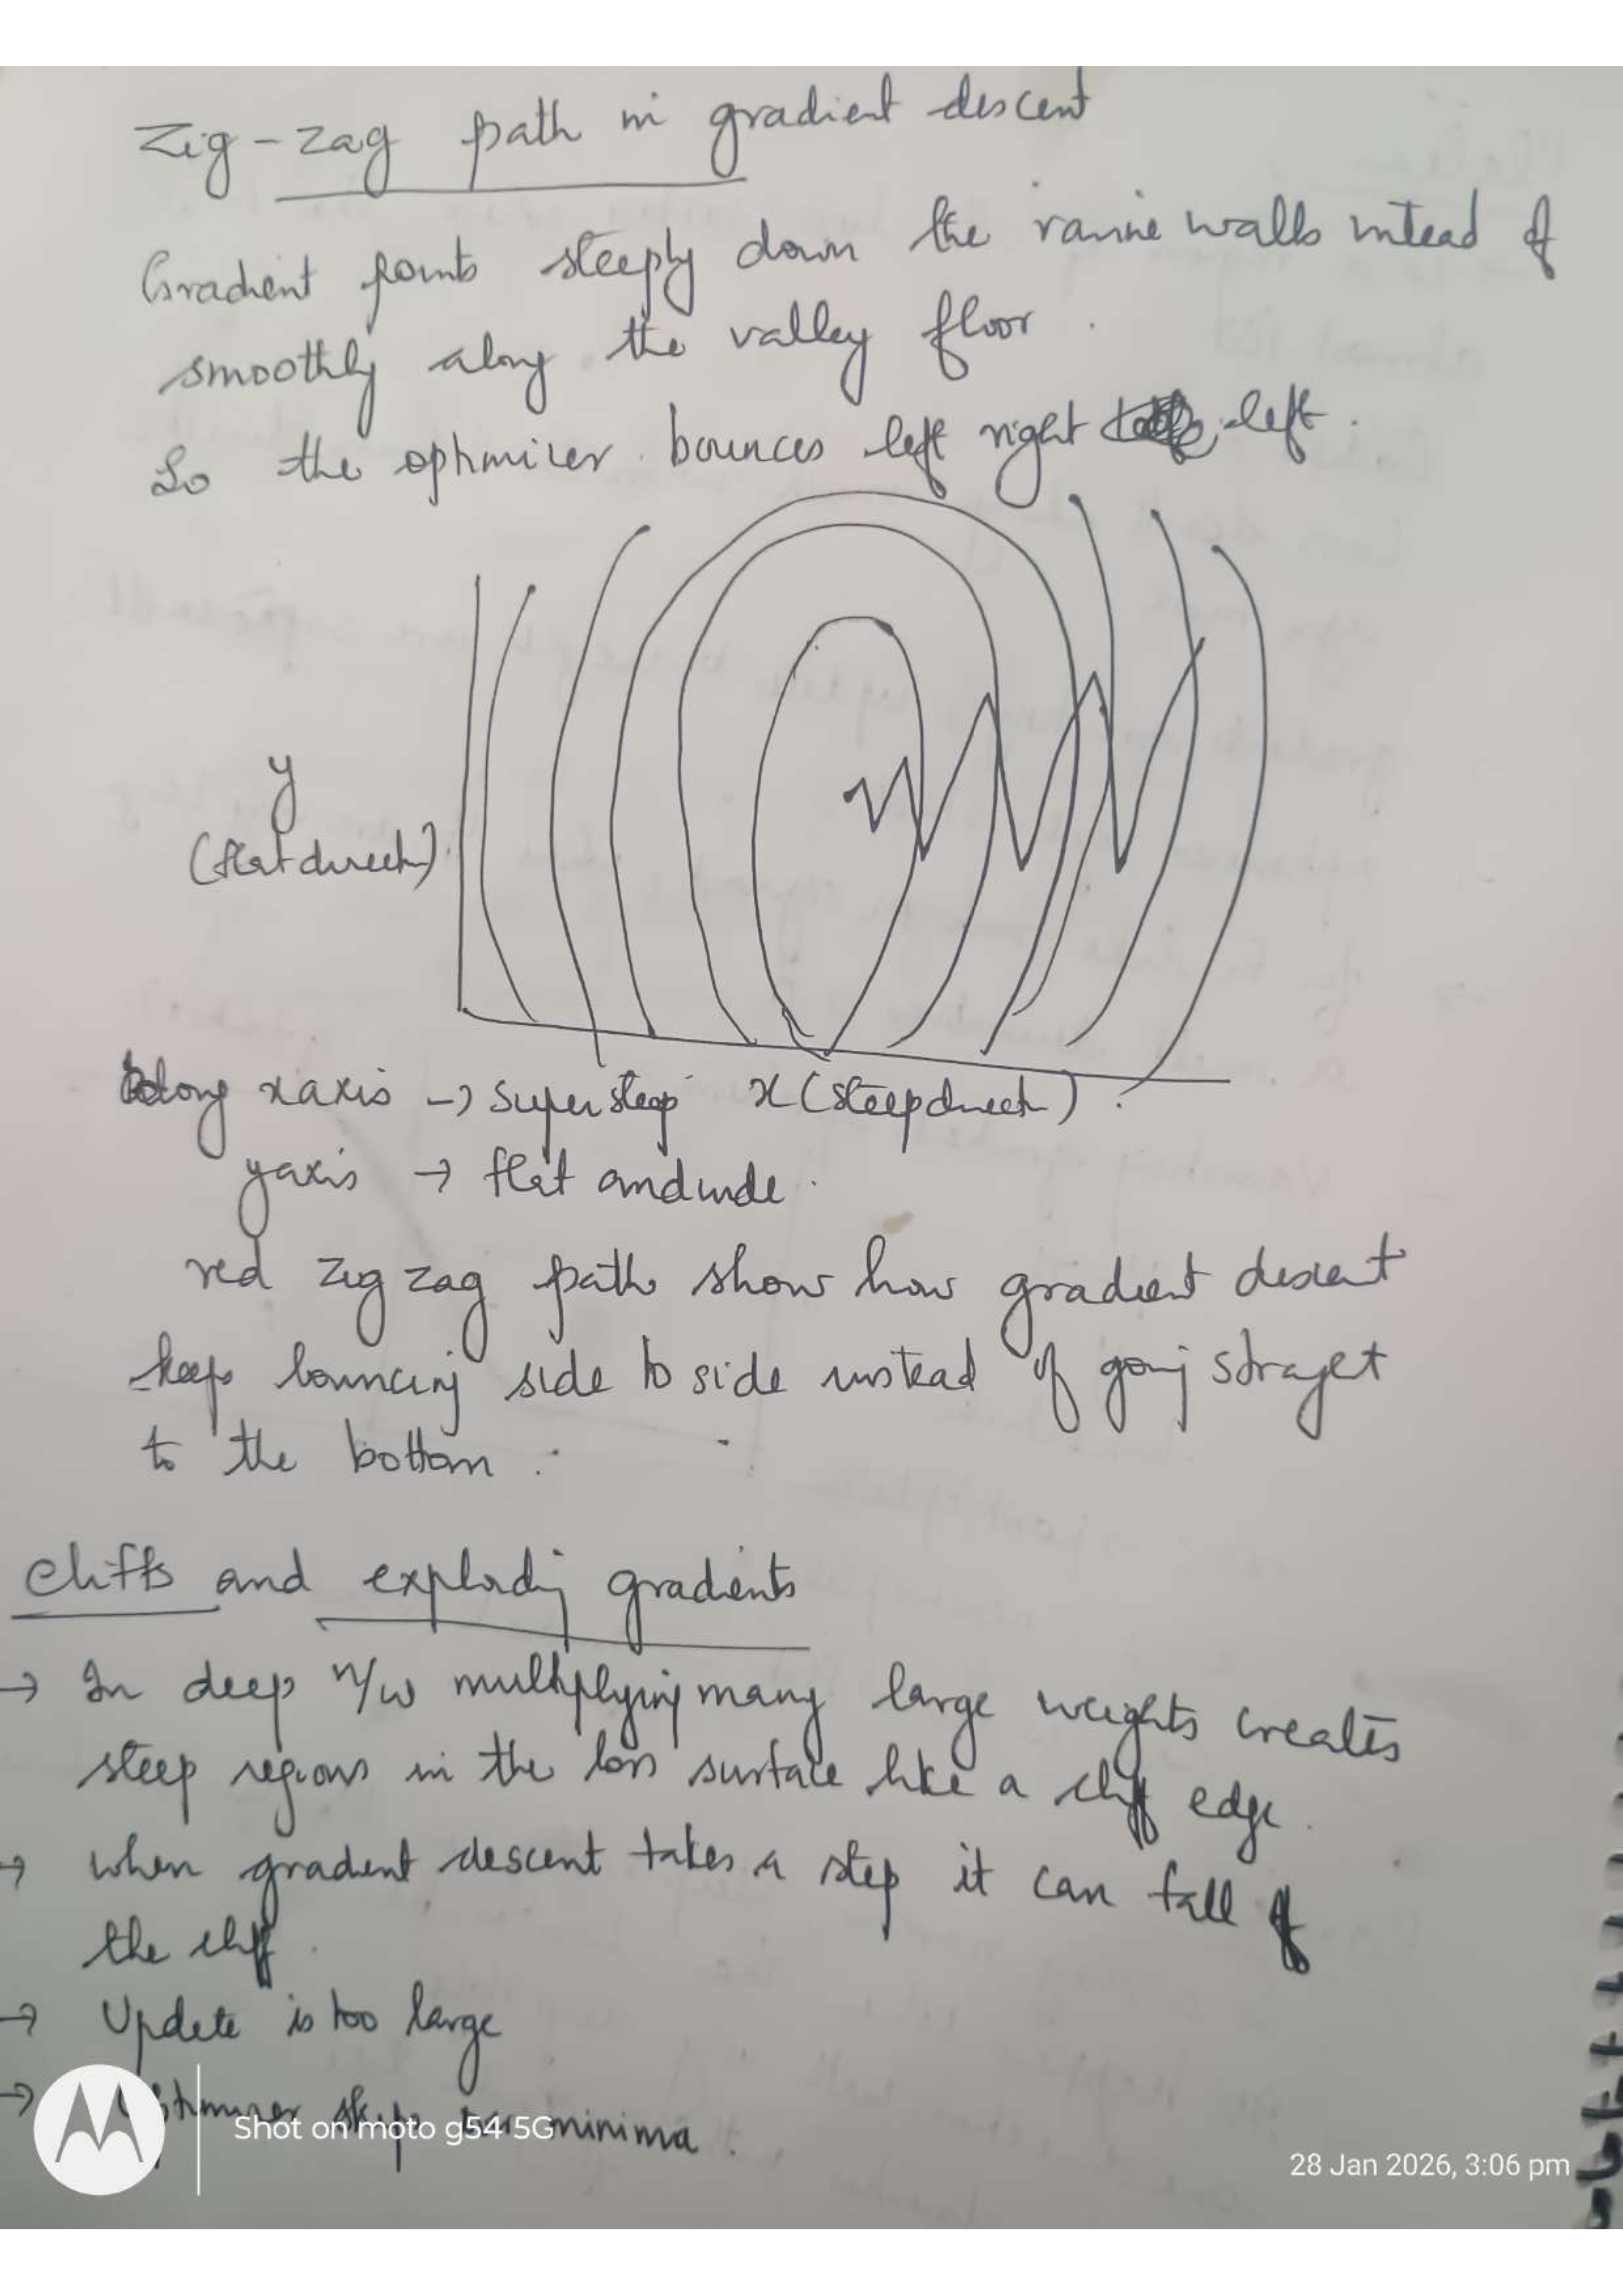 Zig-zag path in gradient descent
Gradient points steeply down the ravine walls intead of
smoothly along the valley floor.
So the optimizer bounces left right left.
y
(flat direct)
Along x axis -> super steep x (steep direct)
y axis -> flat and wide.
red zig zag path show how gradient descent
keeps bouncing side to side instead of going straget
to the bottom.
Cliffs and exploding gradients
-> In deep n/w multiplying many large weights creates
steep regions in the loss surface like a cliff edge.
-> when gradient descent takes a step it can fall of
the cliff.
-> Update is too large
-> minima.
Shot on moto g54 5G
28 Jan 2026, 3:06 pm